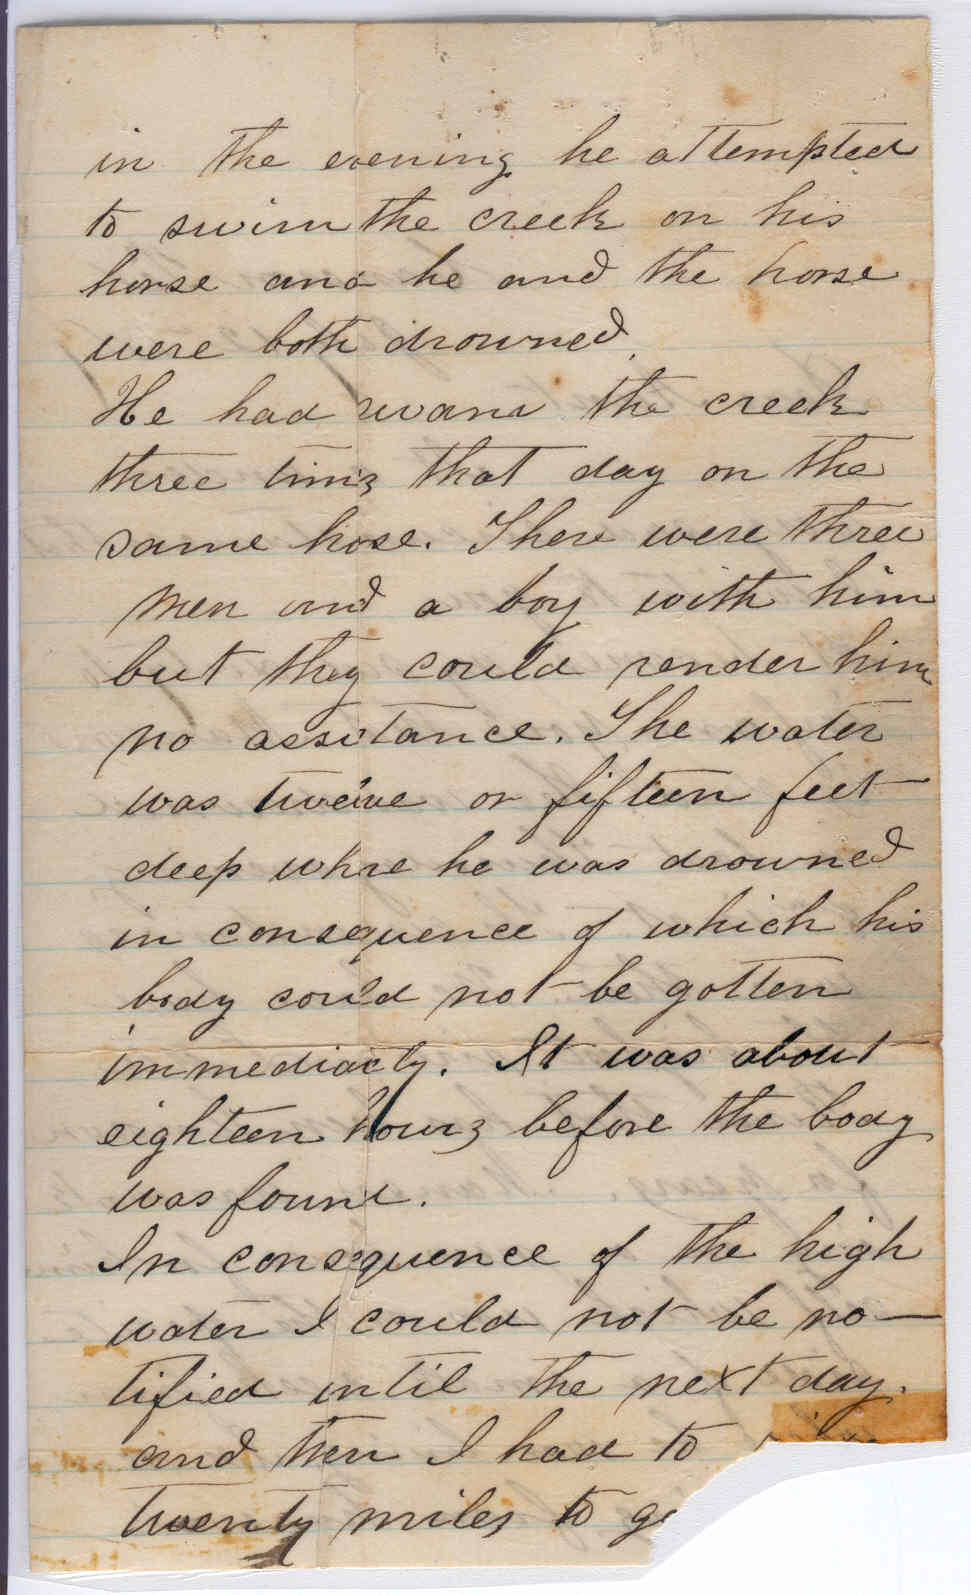 in the evening he attempted
to swim the creek on his
horse and he and the horse
were both drowned
He had swam the creek
three times that day on the
same hose. There were three
men and a boy with him
but they could render him
no assitance. The water
was twelve or fifteen feet
deep whre he was drowned
in consequence of which his
body could not be gotten
immediatly. It was about
eighteen hours before the body
was found.
In consequence of the high
water I could not be no-
tified until the next day.
and then I had to
twenty miles to